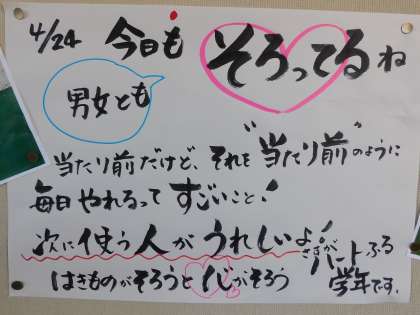 4/24 今日も そろってるね
男女とも
当たり前だけど、それを"当たり前"のように
毎日やれるってすごいこと!
次に使う人がうれしいよ!
さすが
ハートふる
はきものがそろうと心がそろう
学年です.